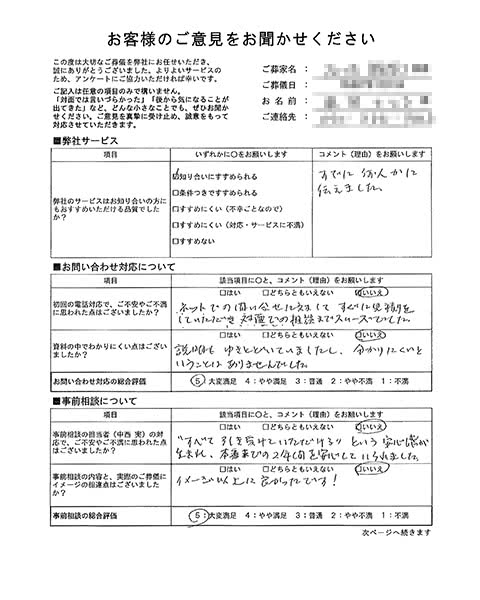 お客様のご意見をお聞かせください
この度は大切なご葬儀を弊社にお任せいただき、
誠にありがとうございました。よりよいサービスの
ため、アンケートにご協力いただければ幸いです。
ご記入は任意の項目のみで構いません。
「対面では言いづらかった」「後から気になることが
出てきた」など、どんな小さなことでも、ぜひお聞か
せください。ご意見を真摯に受け止め、誠意をもって
対応させていただきます。
ご葬家名：
ご葬儀日：
お名前：
ご連絡先：
■弊社サービス
項目 いずれかに○をお願いします コメント（理由）をお願いします
弊社のサービスはお知り合いの方に
もおすすめいただける品質でした
か？
☑知り合いにすすめられる
□条件つきですすめられる
□すすめにくい（不幸ごとなので）
□すすめにくい（対応・サービスに不満）
□すすめない
すでに何人かに
伝えました。
■お問い合わせ対応について
項目 該当項目に○と、コメント（理由）をお願いします
初回の電話対応で、ご不安やご不満
に思われた点はございましたか？
□はい □どちらともいえない □いいえ
ネットでの問い合せに対して すぐに見積りを
していただき 対面での相談までスムーズでした。
資料の中でわかりにくい点はござい
ましたか？
□はい □どちらともいえない □いいえ
説明も ゆきとどいていましたし、分かりにくいと
いうことは ありませんでした。
お問い合わせ対応の総合評価 5：大変満足 4：やや満足 3：普通 2：やや不満 1：不満
■事前相談について
項目 該当項目に○と、コメント（理由）をお願いします
事前相談の担当者（中西 実）の対
応で、ご不安やご不満に思われた点
はございましたか？
□はい □どちらともいえない □いいえ
"すべて 引き受けていただける" という 安心感が
生まれ、本番までの2年間を安心して いられました。
事前相談の内容と、実際のご葬儀に
イメージの相違点はございました
か？
□はい □どちらともいえない □いいえ
イメージ以上に良かったです！
事前相談の総合評価 5：大変満足 4：やや満足 3：普通 2：やや不満 1：不満
次ページへ続きます